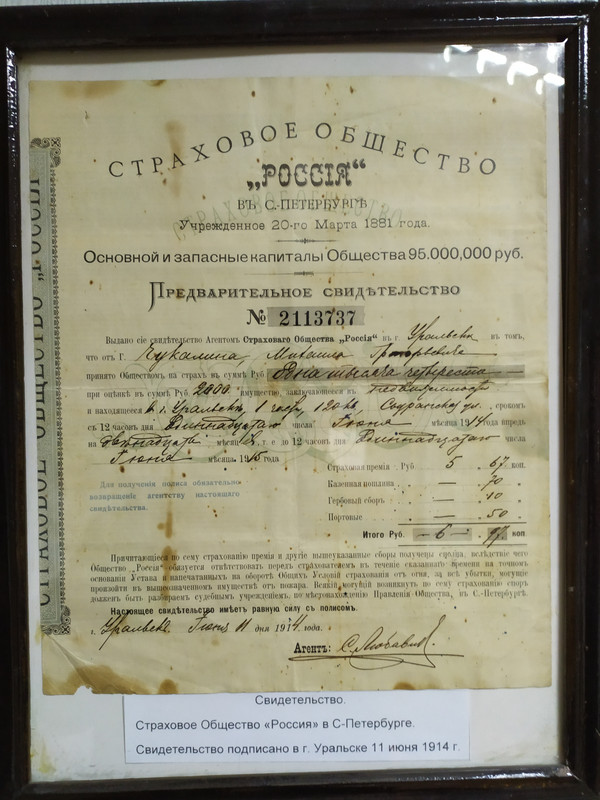 СТРАХОВОЕ ОБЩЕСТВО „РОССІЯ"
СТРАХОВОЕ ОБЩЕСТВО
„РОССІЯ“
ВЪ С.-ПЕТЕРБУРГѢ
Учрежденное 20-го Марта 1881 года.
Основной и запасные капиталы Общества 95.000,000 руб.
Предварительное свидѣтельство
№ 2113737
Выдано сіе свидѣтельство Агентомъ Страховаго Общества „Россія“ въ г. Уральскѣ въ томъ,
что отъ Г. Михаила Григорьевича
принято Обществомъ на страхъ въ суммѣ Руб. Одна тысяча четыреста
при оцѣнкѣ въ суммѣ Руб. 2000 имущество, заключающееся въ недвижимости
и находящееся в г. Уральскѣ, 1 части, 120 кв. ул. срокомъ
съ 12 часовъ дня Одиннадцатаго числа Іюня мѣсяца 1914 года впредь
на двѣнадцать мѣсяцевъ, т. е. до 12 часовъ дня Одиннадцатаго числа
Іюня мѣсяца 1915 года
Страховая премія Руб. 5 . 67 коп.
Для полученія полиса обязательно
возвращеніе агентству настоящаго
свидѣтельства.
Казенная пошлина — 70
Гербовый сборъ — 10
Портовые — 50
Итого Руб. — 6 — 97 коп.
Причитающіеся по сему страхованію премія и другіе вышеуказанные сборы получены сполна, вслѣдствіе чего
Общество „Россія“ обязуется отвѣтствовать передъ страхователемъ въ теченіе сказаннаго времени на точномъ
основаніи Устава и напечатанныхъ на оборотѣ Общихъ Условій страхованія отъ огня, за всѣ убытки, могущіе
произойти въ вышеозначенномъ имуществѣ отъ пожара. Всякій, могущій возникнуть по сему страхованію споръ
долженъ быть разобранъ судебнымъ учрежденіемъ, по мѣстонахожденію Правленія Общества, въ С.-Петербургѣ.
Настоящее свидѣтельство имѣетъ равную силу съ полисомъ.
г. Уральскъ Іюня 11 дня 1914 года.
Агентъ:
Свидетельство.
Страховое Общество «Россия» в С-Петербурге.
Свидетельство подписано в г. Уральске 11 июня 1914 г.